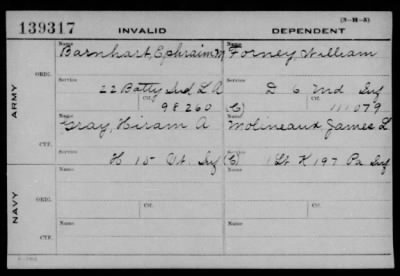 (3-H-3)
139317 INVALID DEPENDENT
Name Name
Barnhart, Ephraim M Forney, William
ORIG. Service Service
22 Batty Ind L A D 6 Ind Inf
Ctf. 98260 (C) 111079
ARMY
Name Name
Gray, Hiram A Molineaux James L
CTF. Service Service
H 15 Vt Inf (C) 1 Lt K 197 Pa Inf
Name Name
ORIG. Service Service
Ctf. Ctf.
NAVY
Name Name
CTF. Service Service